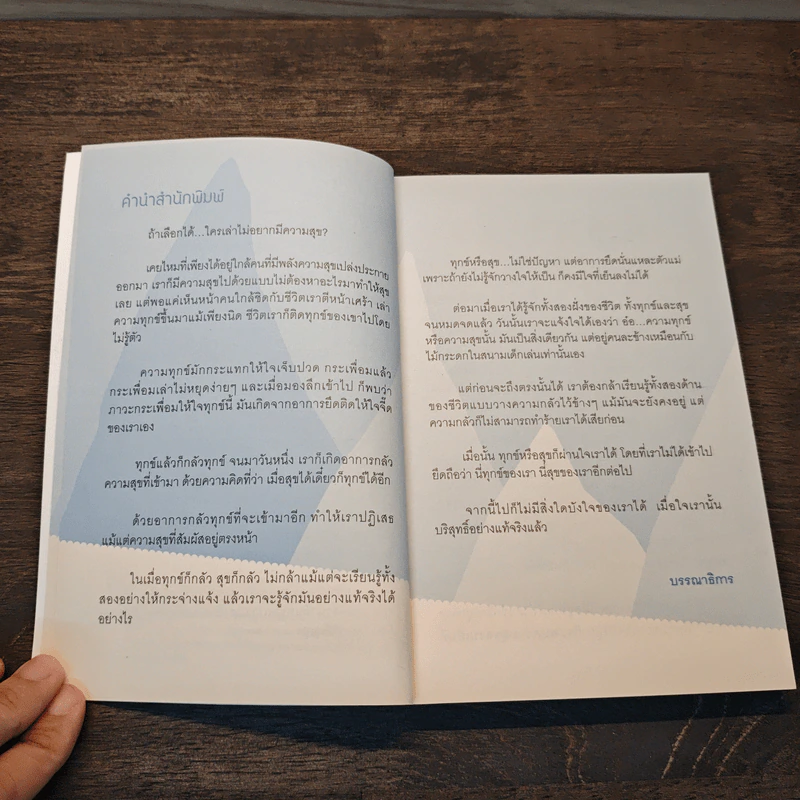 คำนำสำนักพิมพ์
ถ้าเลือกได้...ใครเล่าไม่อยากมีความสุข?
เคยไหมที่เพียงได้อยู่ใกล้คนที่มีพลังความสุขเปล่งประกาย
ออกมา เราก็มีความสุขไปด้วยแบบไม่ต้องหาอะไรมาทำให้สุข
เลย แต่พอแค่เห็นหน้าคนใกล้ชิดกับชีวิตเราตีหน้าเศร้า เล่า
ความทุกข์ขึ้นมาแม้เพียงนิด ชีวิตเราก็ติดทุกข์ของเขาไปโดย
ไม่รู้ตัว
ความทุกข์มักกระแทกให้ใจเจ็บปวด กระเพื่อมแล้ว
กระเพื่อมเล่าไม่หยุดง่ายๆ และเมื่อมองลึกเข้าไป ก็พบว่า
ภาวะกระเพื่อมให้ใจทุกข์นี้ มันเกิดจากอาการยึดติดให้ใจจี๊ด
ของเราเอง
ทุกข์แล้วก็กลัวทุกข์ จนมาวันหนึ่ง เราก็เกิดอาการกลัว
ความสุขที่เข้ามา ด้วยความคิดที่ว่า เมื่อสุขได้เดี๋ยวก็ทุกข์ได้อีก
ด้วยอาการกลัวทุกข์ที่จะเข้ามาอีก ทำให้เราปฏิเสธ
แม้แต่ความสุขที่สัมผัสอยู่ตรงหน้า
ในเมื่อทุกข์ก็กลัว สุขก็กลัว ไม่กล้าแม้แต่จะเรียนรู้ทั้ง
สองอย่างให้กระจ่างแจ้ง แล้วเราจะรู้จักมันอย่างแท้จริงได้
อย่างไร
ทุกข์หรือสุข...ไม่ใช่ปัญหา แต่อาการยึดนั่นแหละตัวแม่
เพราะถ้ายังไม่รู้จักวางใจให้เป็น ก็คงมีใจที่เย็นลงไม่ได้
ต่อมาเมื่อเราได้รู้จักทั้งสองฝั่งของชีวิต ทั้งทุกข์และสุข
จนหมดจดแล้ว วันนั้นเราจะแจ้งใจได้เองว่า อ๋อ...ความทุกข์
หรือความสุขนั้น มันเป็นสิ่งเดียวกัน แต่อยู่คนละข้างเหมือนกับ
ไม้กระดกในสนามเด็กเล่นเท่านั้นเอง
แต่ก่อนจะถึงตรงนั้นได้ เราต้องกล้าเรียนรู้ทั้งสองด้าน
ของชีวิตแบบวางความกลัวไว้ข้างๆ แม้มันจะยังคงอยู่ แต่
ความกลัวก็ไม่สามารถทำร้ายเราได้เสียก่อน
เมื่อนั้น ทุกข์หรือสุขก็ผ่านใจเราได้ โดยที่เราไม่ได้เข้าไป
ยึดถือว่า นี่ทุกข์ของเรา นี่สุขของเราอีกต่อไป
จากนี้ไปก็ไม่มีสิ่งใดบังใจของเราได้ เมื่อใจเรานั้น
บริสุทธิ์อย่างแท้จริงแล้ว
บรรณาธิการ